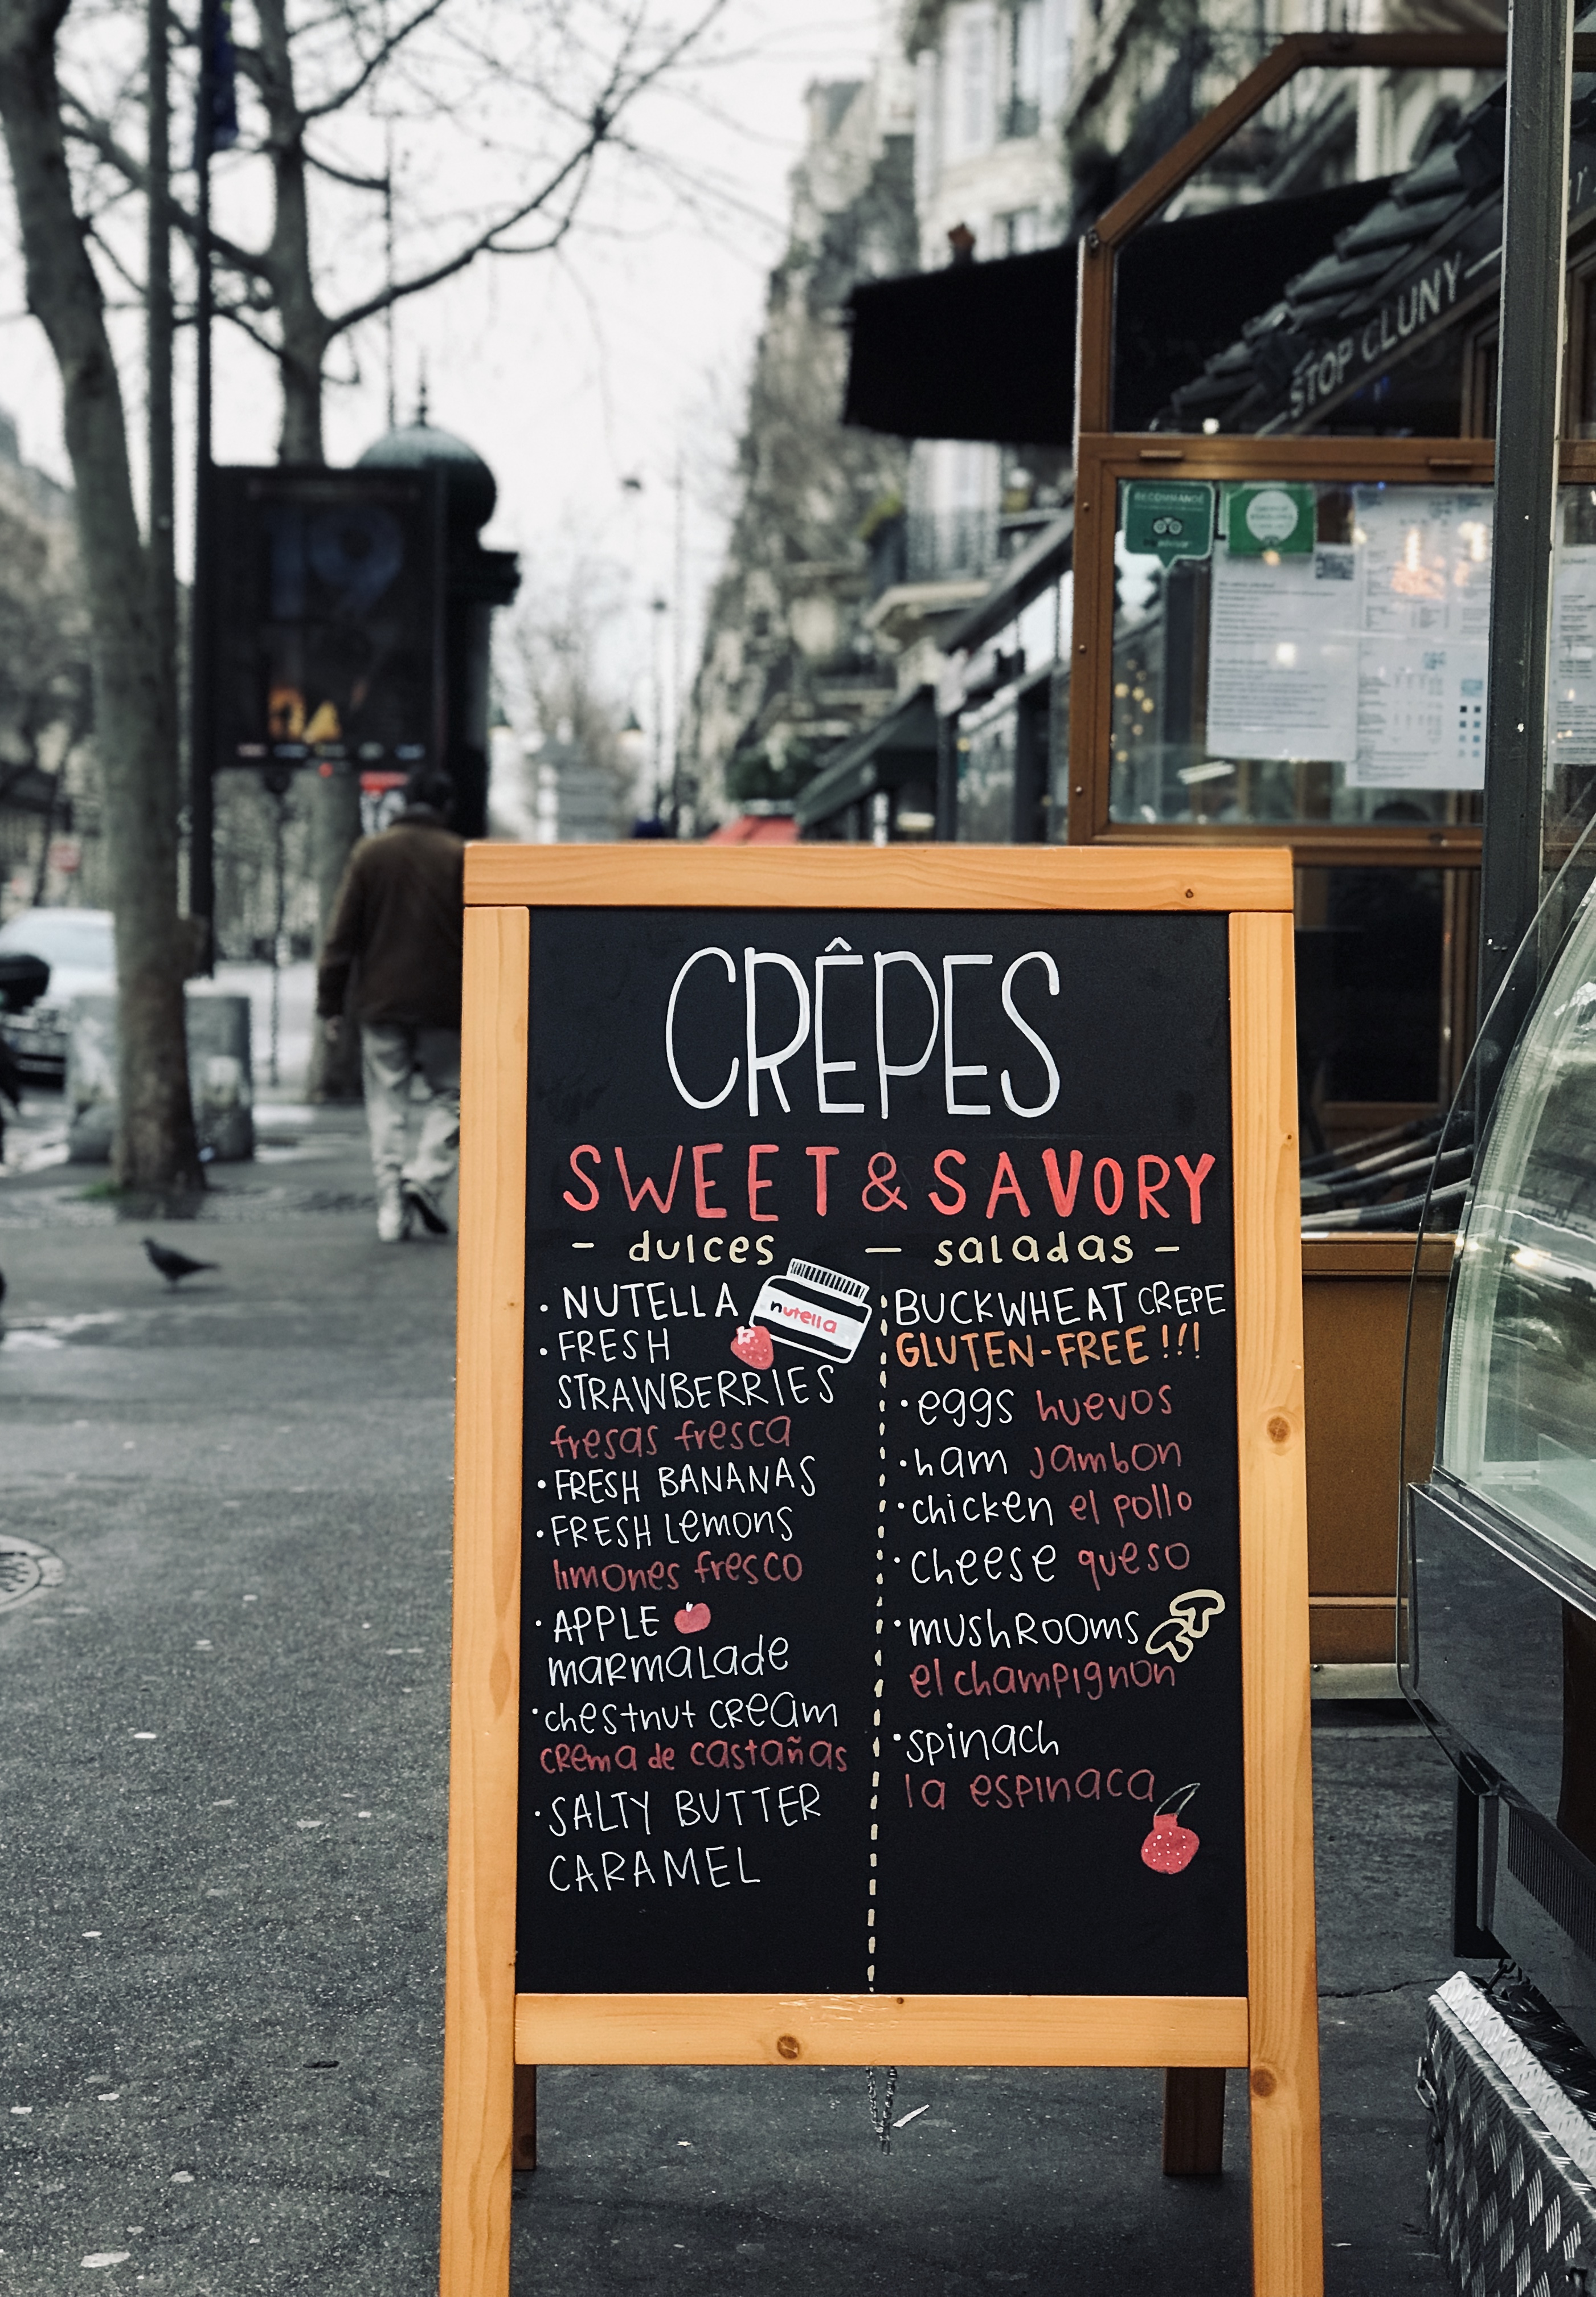 STOP CLUNY
RECOMMANDÉ
19
CRÊPES
SWEET & SAVORY
- dulces - saladas -
• NUTELLA
nutella
• FRESH
STRAWBERRIES
fresas fresca
• FRESH BANANAS
• FRESH Lemons
limones fresco
• APPLE
marmalade
• chestnut cream
crema de castañas
• SALTY BUTTER
CARAMEL
BUCKWHEAT CREPE
GLUTEN-FREE !!!
• eggs huevos
• ham Jambon
• chicken el pollo
• cheese queso
• mushRooms
el champignon
• spinach
la espinaca